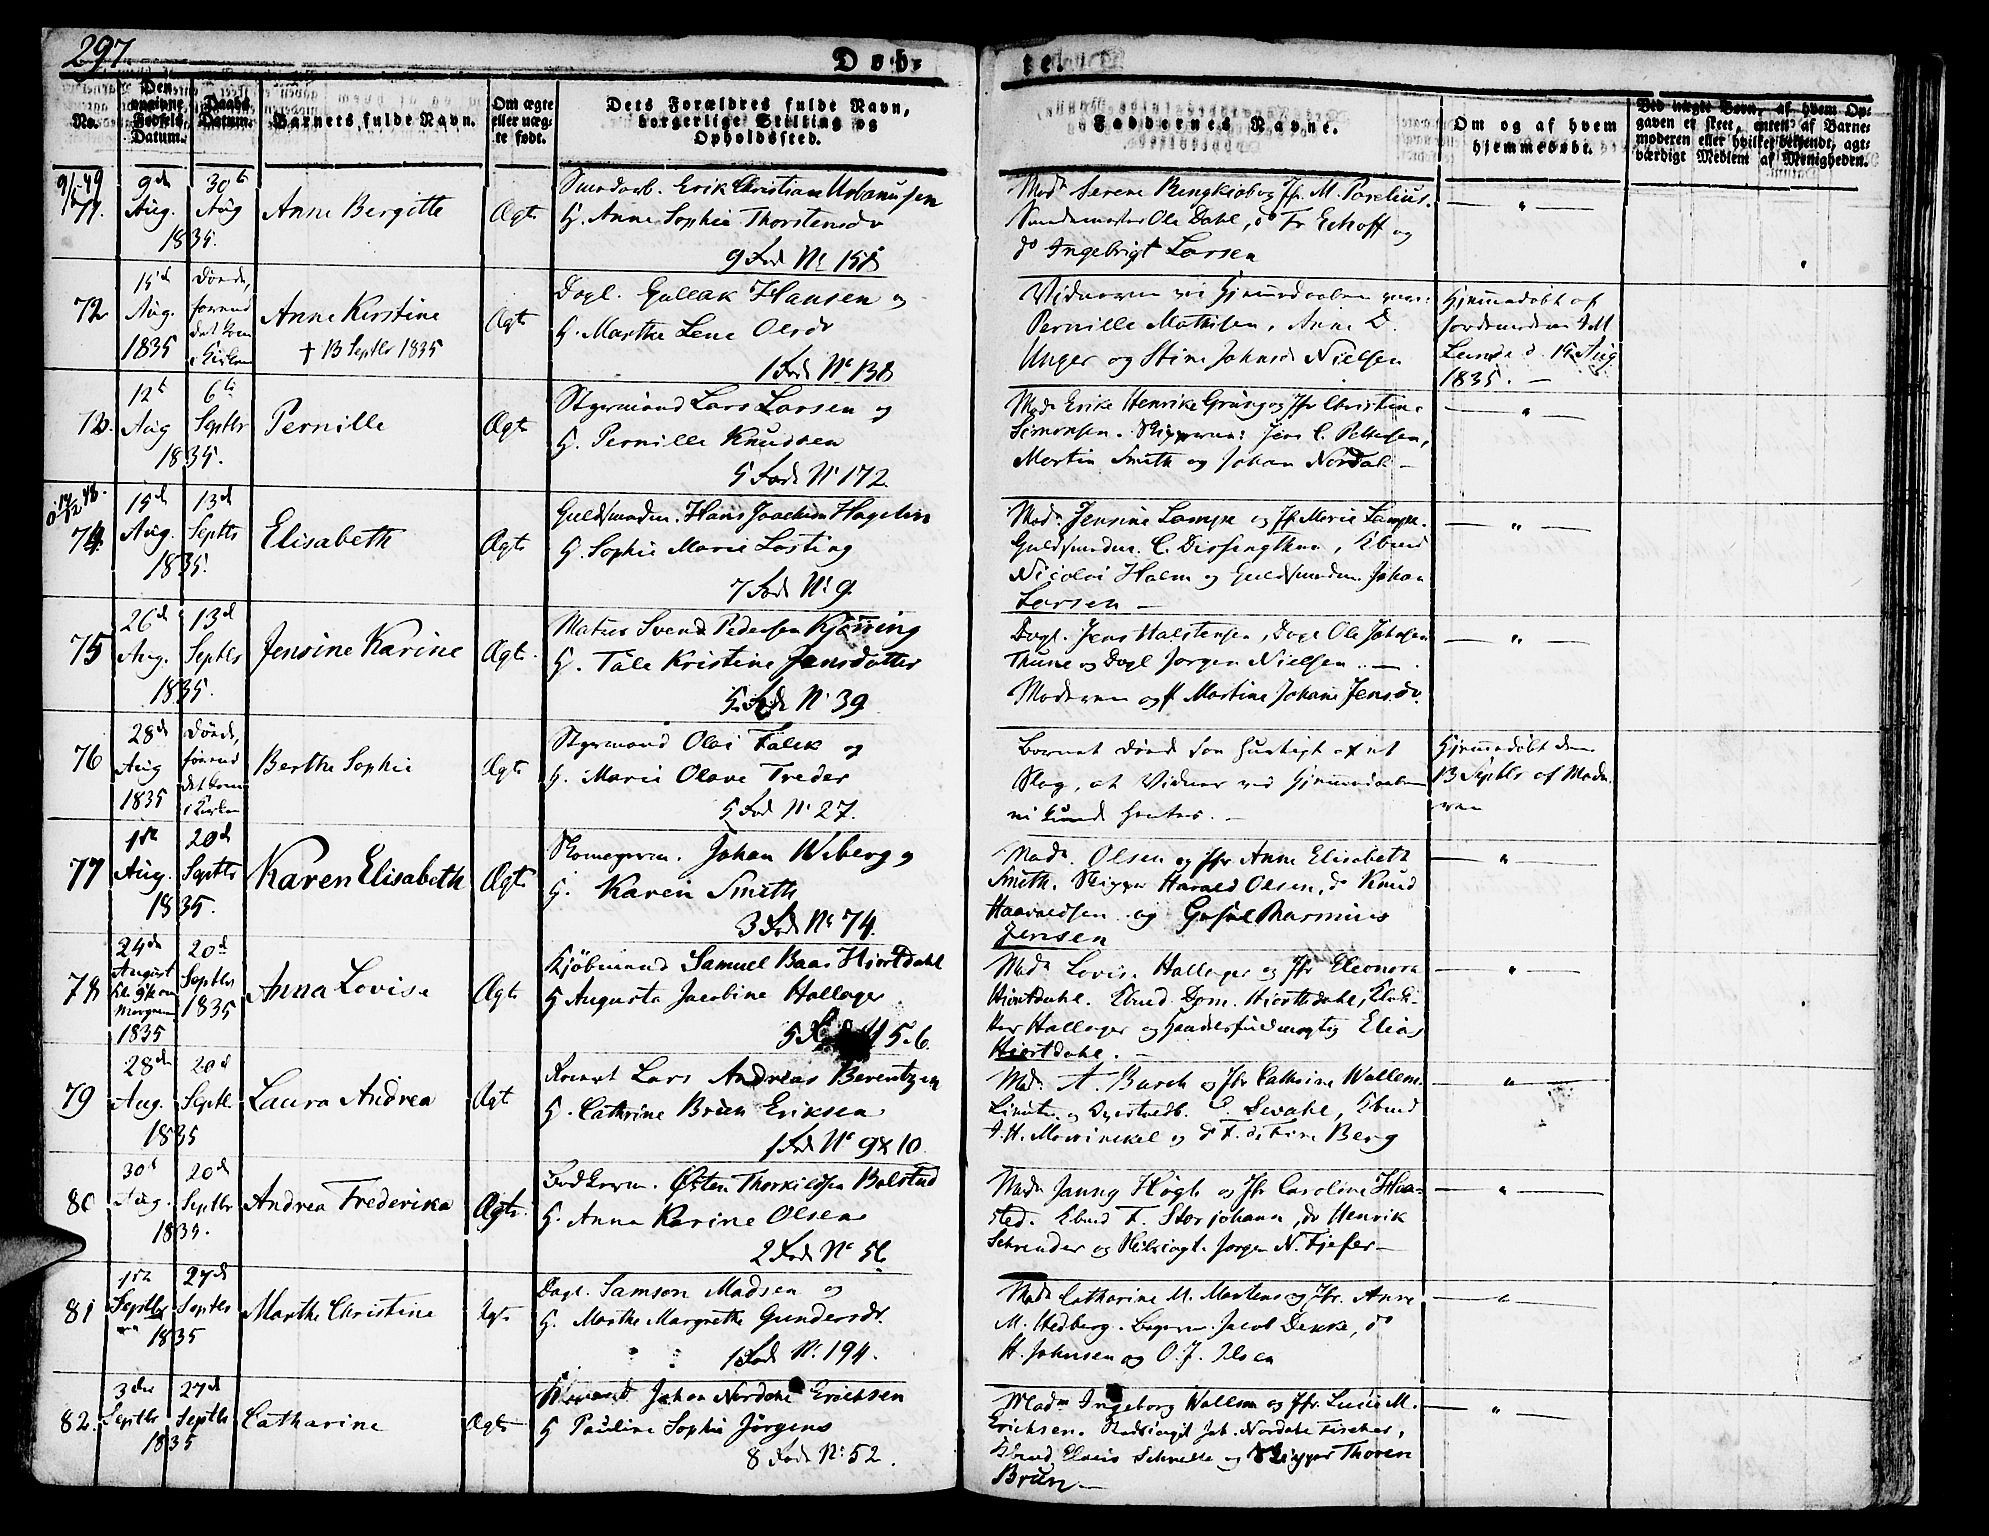 297
Døb-
te.
No.
Den
Fødsels
Datum.
Daabs
Datum.
Barnets fulde Navn.
Om ægte
eller uæg-
te født.
Dets Forældres fulde Navn,
borgerlige Stilling og
Opholdssted.
Faddernes Navne.
Om og af hvem
hjemmedøbt.
Ved uægte Børn, af hvem Op-
gaven er skeet, enten af Barne-
moderen eller hvilket bekjendt, agt-
værdigt Medlem af Menigheden.
71.
9de
Aug.
30te
Aug
1835.
Anne Bergitte
Ægte
Erik Christian Urbanusen
H. Anne Sophie Thorstensdr
9 Fod No 158
Mad. Serene Ringkiøb og Jfr. M. Paselius.
Ole Dahl, do Fr Echoff og
do Ingebrigt Larsen
72
15de
Aug.
1835
Døde,
førend
det kom
i Kirken
Anne Kirstine
† 13 Septbr 1835
Ægte
Dagl. Gullak Hansen og
H. Marthe Lene Olsdr
1 Fod No 138
Vidnerne ved Hjemmedaaben vare:
Pernille Mathisen, Anne D.
Unger og Stine Johnsd Nielsen
Hjemmedøbt af
Jordemoder
Lunde d. 15 Aug
1835. —
73.
12te
Aug
6te
Septbr
1835.
Pernille
Ægte
Styrmand Lars Larsen og
H. Pernille Knudsen
5 Fod No 172
Mad. Erike Henrike Grung og Jfr Christine
Simonsen. Skipperne: Jens C. Pettersen,
Martin Smith og Johan Nordal —
74.
15de
Aug.
13de
Septbr
1835.
Elisabeth
Ægte
Guldsmedm. Hans Joachim Hagelin
H. Sophie Marie Losting
7 Fod No 9.
Mad. Jensine Lampe og Jfr Marie Lampe.
Guldsmedm. C. , Kbmd
Nicolai Holm og Guldsmedm. Johan
Larsen —
75
26de
Aug.
13de
Septbr
1835.
Jensine Karine
Ægte
Matros Svend Pedersen Kjørring
H. Tale Kristine Jensdatter
5 Fod No 39
Dagl. Jens Halstensen, Dagl Ole Johnsen
Thune og Dagl Jørgen Nielsen. —
Moderen og P. Martine Johane Jensdr.
76
28de
Aug
1835
Døde,
førend
det kom
i Kirken
Berthe Sophie
Ægte
Styrmand Olai Falck og
H. Marie Olave Treder
5 Fod No 27.
Barnet døde saa hurtigt af et
Slag, at Vidner ved Hjemmedaaben
ei kunde hentes. —
Hjemmedøbt den
13 Septbr af Mode-
ren
77
1ste
Aug.
20de
Septbr
1835.
Karen Elisabeth
Ægte
Skomagerm. Johan Wiberg og
H. Karen Smith
3 Fod No 74.
Mad. Olsen og Jfr Anne Elisabeth
Smith. Skipper Harald Olsen, do Knud
Haavaldsen og Rasmus
Jensen
78
24de
August
Kl. 9
Morgen
1835
20de
Septbr
1835
Anna Lovise
Ægte
Kjøbmand Samuel Baar Hjortdahl
H Augusta Jacobine Hallager
5 5.6.
Mad. Lovise Hallager og Jfr Eleonora
Hjortdahl. Kbmd. Dom. Hjortdahl,
Hallager og Handelsfuldmægtig Elias
Hjortdahl. —
79
28de
Aug.
20de
Septbr
1835
Laura Andrea
Ægt
Lars Andreas Berentzen
H. Cathrine Brun Eriksen
1 Fod No 9 & 10.
Mad. A. Burch og Jfr Cathrine Wallem.
E. Svahl, Kbmd
J. H. Mowinckel og do F. Berg
80
30te
Aug.
20de
Septbr
1835.
Andrea Frederika
Ægte
Østen Thorkildsen Bolstad
H. Anna Karine Olsen
2 Fod No 56
Mad. Janny Høgh og Jfr Caroline Haa-
sted. Kbmd F. Storjohann, do Henrik
Schrøder og Jørgen N. Fjefer —
81
1ste
Septbr
27de
Septbr
1835
Marthe Christine
Ægte
Dagl. Samson Madsen og
H. Marthe Margrethe Gundersdr.
1 Fod No. 194.
Mad. Catharine M. Martens og Jfr. Anne
M. Hedberg. Bagerm. Jacob Dekke, do
H. Johnsen og O. J. Ilsen
82.
3die
Septbr
27de
Septbr
1835
Catharine
Ægte
Johan Nordahl Erichsen
H Pauline Sophie Jørgens
8 Fod No. 52.
Madm Ingeborg Wallem og Jfr. Lucie M.
Erichsen. Joh. Nordahl Fischer,
Kbmd Elovis Schnelle og Skipper Thoren
Brun. —